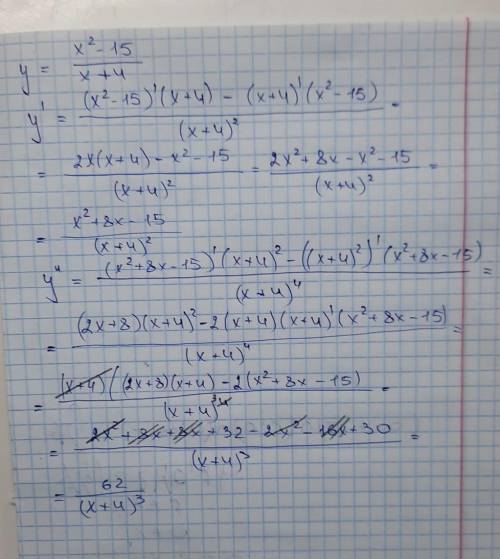 y = (x² - 15)/(x + 4)
y' = ((x² - 15)' (x + 4) - (x + 4)' (x² - 15))/(x + 4)² =
= (2x(x + 4) - x² - 15)/(x + 4)² = (2x² + 8x - x² - 15)/(x + 4)² =
= (x² + 8x - 15)/(x + 4)²
y'' = ((x² + 8x - 15)' (x + 4)² - ((x + 4)²)' (x² + 8x - 15))/(x + 4)⁴ =
= ((2x + 8)(x + 4)² - 2(x + 4)(x + 4)' (x² + 8x - 15))/(x + 4)⁴ =
= (x + 4)((2x + 8)(x + 4) - 2(x² + 8x - 15)/(x + 4)³⁴ =
= (2x² + 8x + 8x + 32 - 2x² - 16x + 30)/(x + 4)³ =
= 62/(x + 4)³